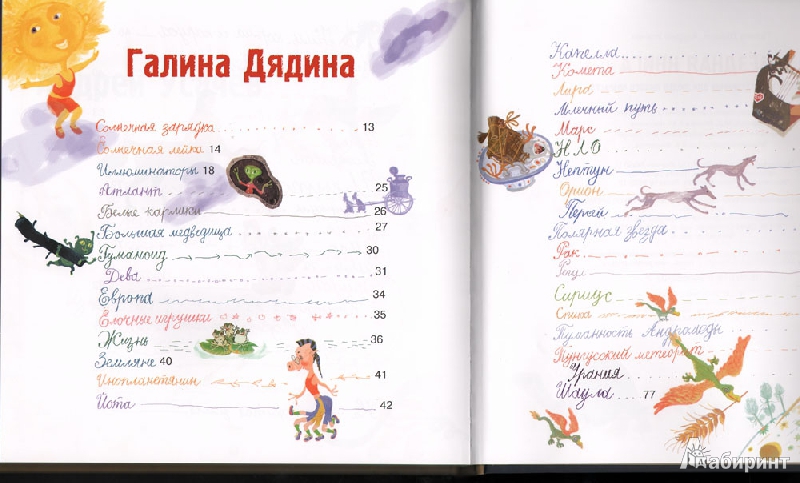 Галина Дядина
Солнечная зарядка 13
Солнечная лейка 14
Иллюминаторы 18
Атлант 25
Белые карлики 26
Большая медведица 27
Гуманоид 30
Дева 31
Европа 34
Ёлочные игрушки 35
Жизнь 36
Земляне 40
Инопланетянин 41
Йота 42
Капелла
Комета
Лира
Млечный путь
Марс
НЛО
Нептун
Орион
Персей
Полярная звезда
Рак
Сириус
Спика
Туманность Андромеды
Тунгусский метеорит
Урания
Шаула 77
Лабиринт